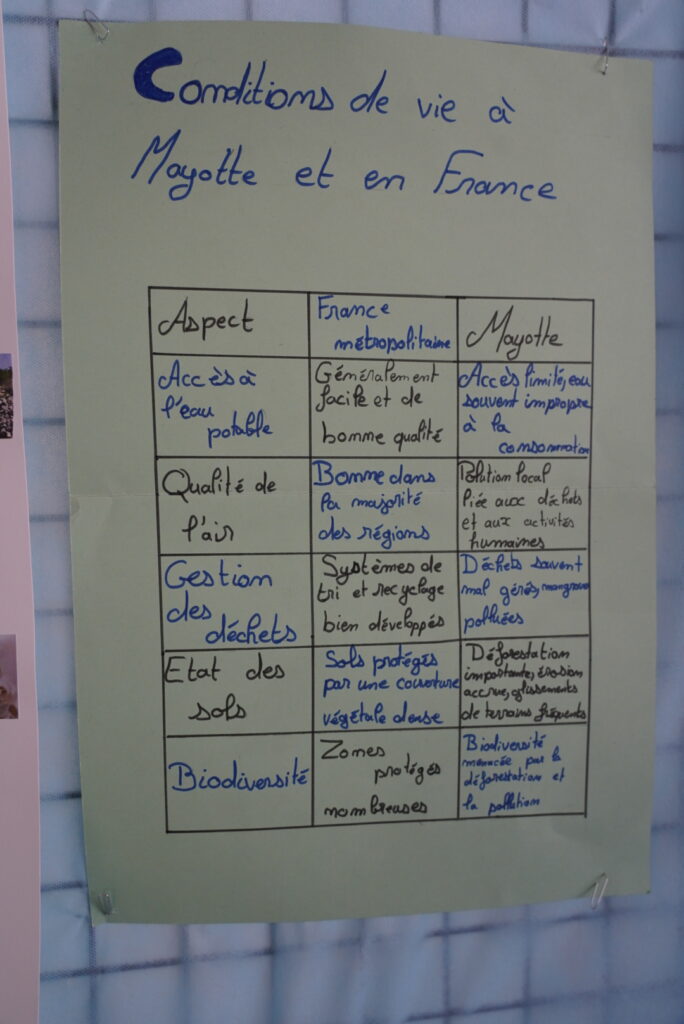 Conditions de vie à
Mayotte et en France
Aspect
France
métropolitaine
Mayotte
Accès à
l'eau
potable
Généralement
facile et de
bonne qualité
Accès limité, eau
souvent impropre
à la
consommation
Qualité de
l'air
Bonne dans
la majorité
des régions
Pollution local
liée aux déchets
et aux activités
humaines
Gestion
des
déchets
Systèmes de
tri et recyclage
bien développés
Déchets souvent
mal gérés, mangrove
polluées
Etat des
sols
Sols protégés
par une couverture
végétale dense
Déforestation
importante, érosion
accrue, glissements
de terrains fréquents
Biodiversité
Zones
protégés
nombreuses
Biodiversité
menacée par la
déforestation et
la pollution